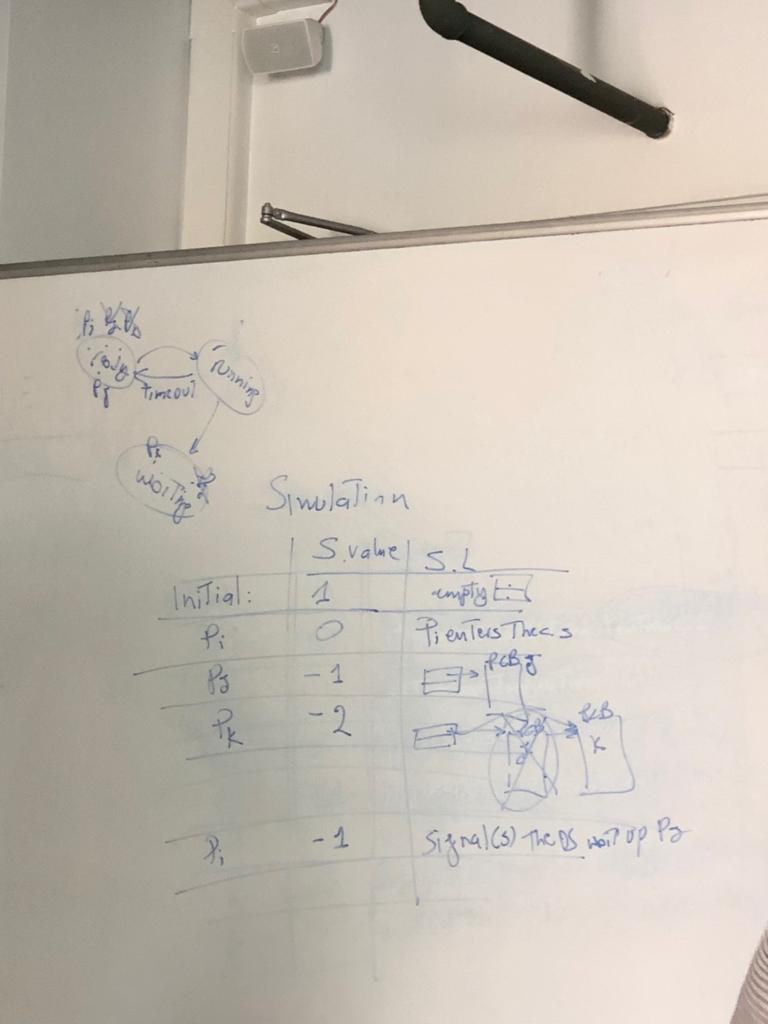 Pi Pj Pk
ready
running
Pj
timeout
Pk
waiting
Simulation
S.value S.L
Initial: 1 empty
Pi 0 Pi enters the cs
Pj -1 PCB J
Pk -2 PCB K
Pi -1 Signal(s) The OS wait up Pj